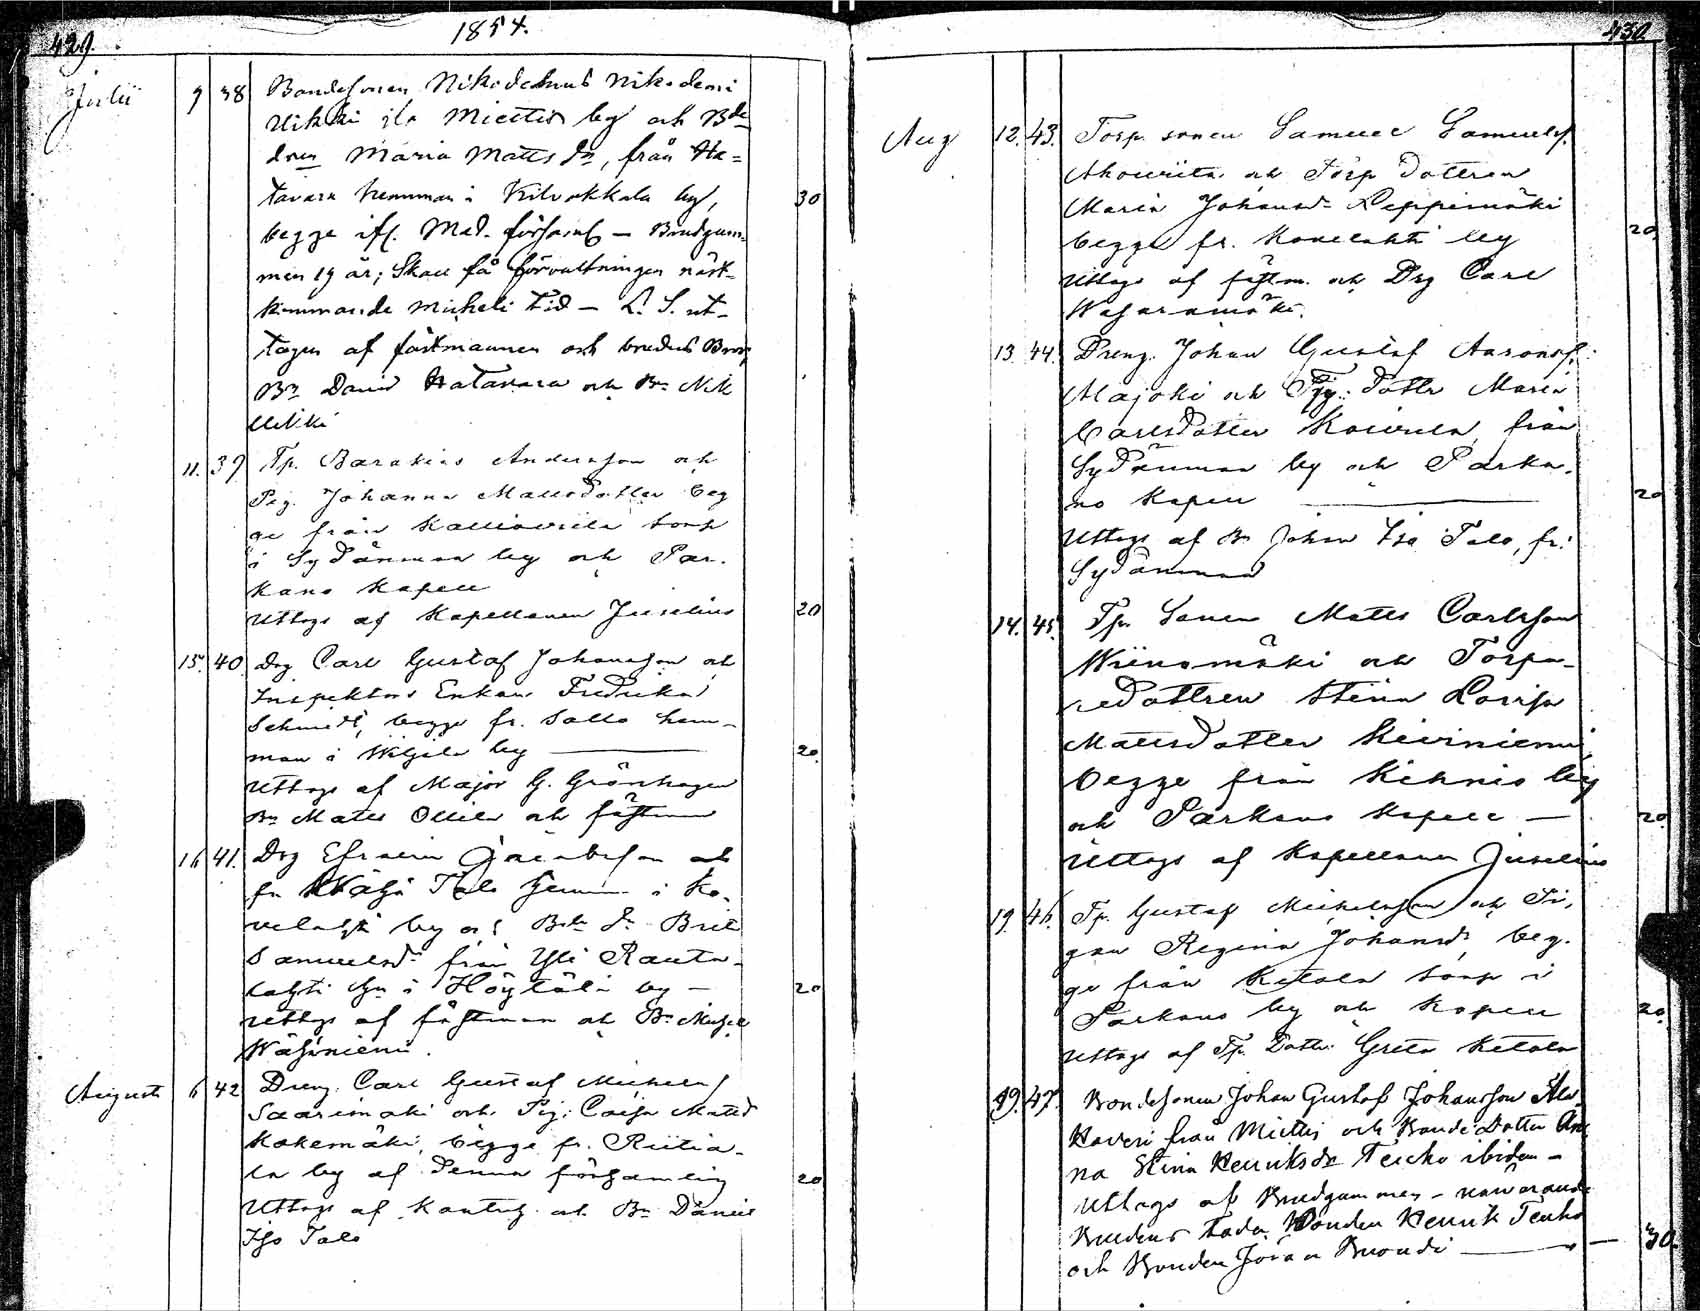 429.
1854.
Julii 9 38 Bondesonen Nikodemus Nikodemi
Uikki ifr. Miettis by och Bde
dren Maria Matts dr, från Ha=
tavara hemman i Kilvakkala by, 30
begge ifr. Mod. församl – Brudgum-
men 19 år; Skall få förvaltningen näst-
kommande Micheli tid – L. S. ut-
tagen af fästmannen och brudens Bror
Bn David Hatavara och Bn Nik
Uikki
11. 39 Tp. Barakias Andersson och
Pig. Johanna Mattsdotter beg
ge från torp
i Sydänmaa by och Par-
kano Kapell
Uttogs af Kapellanen Juselius 20
15. 40 Drg Carl Gustaf Johansson och
Inspektors Enkan Fredrika
Schmidt, begge fr. Salla hem-
man i Wiljala by 20.
Uttogs af Major G. Grönhagen
Bn Matts Ollila och fästmn
16 41. Drg Efraim Jacobsson och
fr Wähä Talo hemm. i Ko-
velahti by och Bde dr Brit
Samuelsd. från Yli Rauta-
lahti hn i Höytölä by – 20
Uttogs af fästman och Bn Michel
Wähäniemi.
Augusti 6 42 Dreng. Carl Gustaf Michelss
Saarimäki och Pig: Caisa Matsd
Kokemäki, begge fr. Riitia-
la by af denna församling 20
Uttogs af Kontrh. och Bn Daniel
Iso Talo
430
Aug 12. 43. Torp. sonen Samuel Samuelss.
och Torp dottren
Maria Johansd. Leppimäki
begge fr. Kovelahti by 20.
Uttogs af fästm. och Drg Carl
Wasaramäki.
13. 44. Dreng. Johan Gustaf Aaronss.
Majoki och dottr Maria
Carlsdotter Koivula, från
Sydänmaa by och Parka-
no Kapell 20
Uttogs af Bn Johan Iso Talo, fr.
Sydänmaa
14. 45. Tp. Sonen Matts Carlsson
Wiinamäki och Torpa-
redottren Stina Lovisa
Mattsdotter Kiviniemi,
begge från Kihniö by
och Parkano Kapell — 20.
Uttogs af Kapellanen Juselius
19. 46. Tp. Gustaf Michelsson och Pi-
gan Regina Johansdr beg-
ge från Ketola torp i
Parkano by och Kapell 20.
Uttogs af Tp. Dottr. Greta Ketola
19. 47. Bondesonen Johan Gustaf Johansson Ala-
Kaveri från Miettis och Bonde Dotter An-
na Stina Henriksdr Teicko ibidem –
Uttogs af Brudgummen – närvarande
Brudens fader Bonden Henrik Teicko
och Bonden Jöran Knondi — 30.